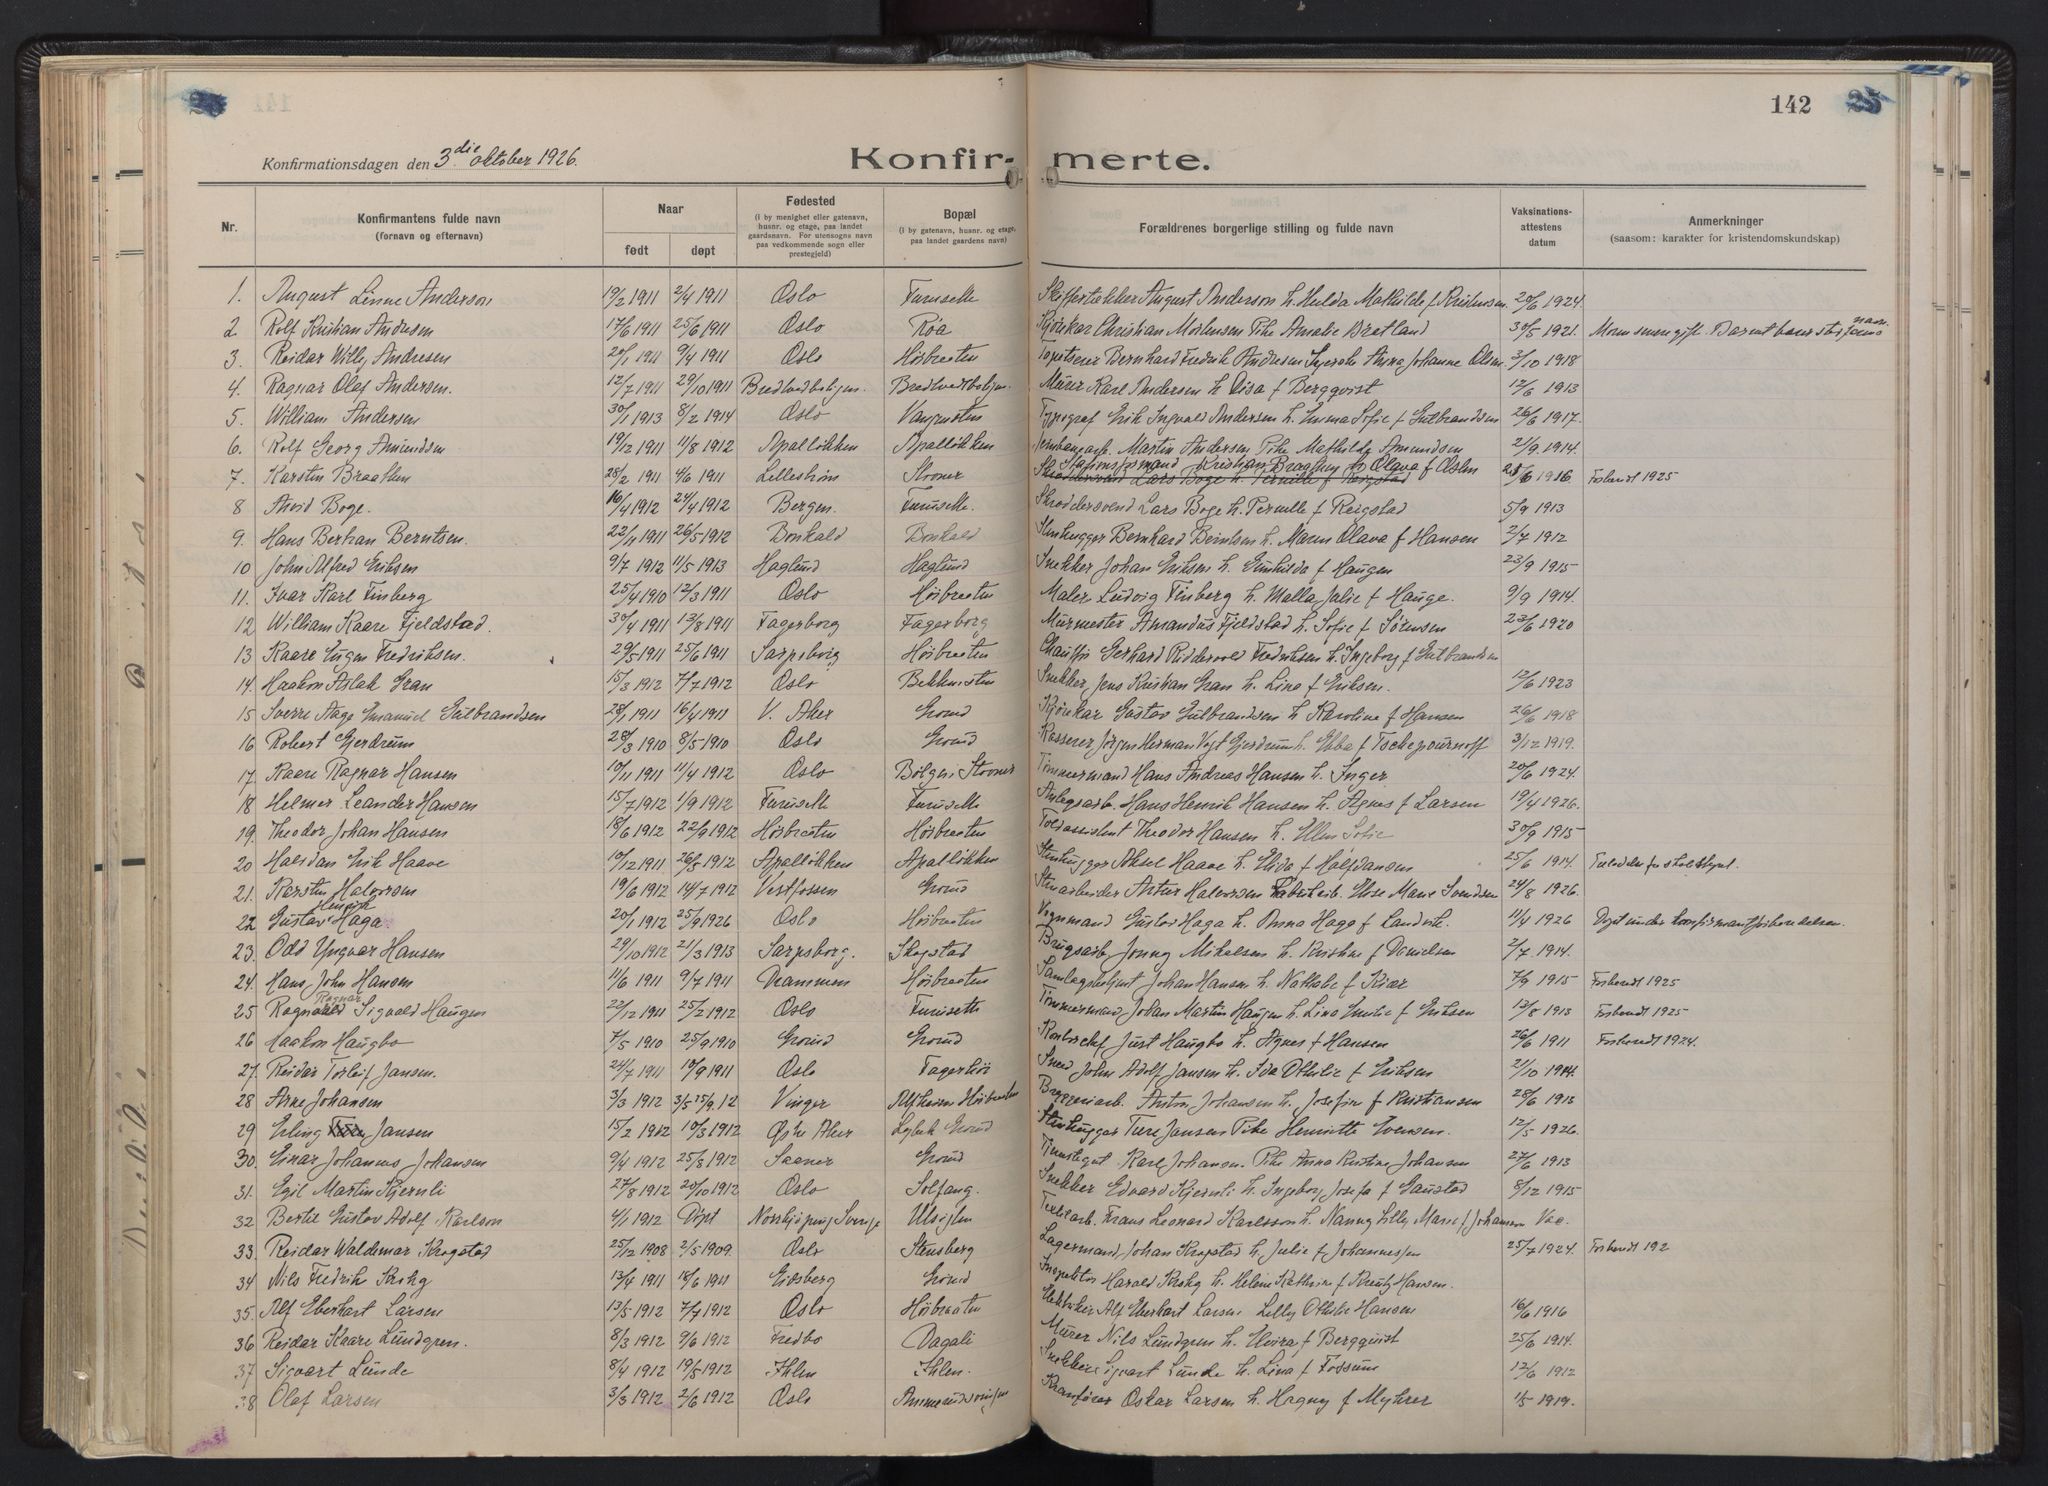 142
Konfirmationsdagen den 3die oktober 1926.
Konfirmerte.
Nr.
Konfirmantens fulde navn
(fornavn og efternavn)
Naar
født
døpt
Fødested
(i by menighet eller gatenavn,
husnr. og etage, paa landet
gaardsnavn. For utensogns navn
paa vedkommende sogn eller
prestegjeld)
Bopæl
(i by gatenavn, husnr. og etage,
paa landet gaardens navn)
Forældrenes borgerlige stilling og fulde navn
Vaksinations-
attestens
datum
Anmerkninger
(saasom: karakter for kristendomskundskap)
1. August Linne Anderson 19/2 1911 2/4 1911 Oslo Furuseth August Anderson h. Hulda Mathilde f 20/6 1924
2. Rolf Kristian Andresen 17/6 1911 25/6 1911 Oslo Røa Kjørekar Christian Mortensen Pike Amalie Bretland 30/5 1921.
3. Reidar Willy Andresen 20/1 1911 9/4 1911 Oslo Høibraaten Bernhard Fredrik Andresen Anna Johanne Olsen 3/10 1918
4. Ragnar Olaf Andersen. 12/7 1911 29/10 1911 Bredtvedboligen. Bredtvedtboligen. Murer Karl Andersen h. Lisa f Bergqvist 12/6 1913
5. William Andersen 30/1 1913 8/2 1914 Oslo Typograf Erik Ingvald Andersen h. Emma Sofie f Gulbrandsen 26/6 1917.
6. Rolf Georg Amundsen 19/12 1911 11/8 1912 Apalløkken Apalløkken Jernbanearb. Martin Andersen Pike Mathilde Amundsen 2/9 1914.
7. Karsten Braathen 28/2 1911 4/6 1911 Lillestrøm Stovner Stationsformand Kristian Braathen h. Olava f Olsen Forberedt 1925
8 Arvid Boge. 16/4 1912 24/4 1912 Bergen. Furuseth. Skreddersvend Lars Boge h. Pernille f Reigstad 5/9 1913
9. Hans Bertran Berntsen. 22/11 1911 26/5 1912 Bonkald Bonkald Stenhugger Bernhard Berntsen h. Maren Olava f Hansen 2/7 1912
10 John Alfred Eriksen 9/7 1912 11/5 1913 Haglund Haglund Snekker Johan Eriksen h. Gunhilda f Haugen 23/9 1915
11. Ivar Karl Finberg 25/4 1910 12/3 1911 Oslo Høibraaten Maler Ludvig Finberg h. Malla Julie f Hauge. 9/9 1914.
12 William Kaare Fjeldstad. 30/4 1911 13/8 1911 Fagerborg Fagerborg Murmester Amandus Fjeldstad h. Sofie f Sørensen 23/6 1920
13 Kaare Eugen Fredriksen. 29/5 1911 25/6 1911 Sarpsborg Høibraaten Chauffør Gerhard Riddervold Fredriksen h. Ingeborg f Gulbrandsen
14. Haakon Aslak Gran 15/3 1912 7/7 1912 Oslo Snekker Jens Kristian Gran h. Lina f Eriksen. 12/6 1923
15 Sverre Aage Emanuel Gulbrandsen 28/1 1911 16/4 1911 V. Aker Grorud Kjørekar Gustav Gulbrandsen h. Karoline f Hansen 26/6 1918
16 Robert Gjerdrum 28/3 1910 8/5 1910 Oslo Grorud Kasserer Jørgen Herman Vogt Gjerdrum h. Ebba f 3/12 1919.
17. Kaare Ragnar Hansen 10/11 1911 11/4 1912 Oslo Bølgen Stovner Tømmermand Hans Andreas Hansen h. Inger 20/6 1924.
18 Helmer Leander Hansen 15/7 1912 1/9 1912 Furuseth Furuseth Anlegsarb. Hans Henrik Hansen h. Agnes f Larsen 19/4 1926.
19. Theodor Johan Hansen 18/6 1912 22/9 1912 Høibraaten Høibraaten Toldassistent Theodor Hansen h. Ellen Sofie 30/9 1915
20 Halvdan Erik Haave 10/12 1911 26/5 1912 Apalløkken Apalløkken Stenhugger Aksel Haave h. Elida f Halfdansen 25/6 1914.
21. Karsten Halvorsen 19/6 1912 14/7 1912 Vestfossen Grorud Stenarbeider Artur Halvorsen Fabrikarb. Else Marie Svendsen 24/8 1926.
22 Gustav Henrik Haga 20/1 1912 25/9 1926 Oslo Høibraaten Vognmand Gustav Haga h. Anna Haga f Landvik. 11/4 1926 Døpt under konfirmantforberedelsen.
23. Odd Yngvar Hansen 29/10 1912 21/3 1913 Sarpsborg. Skogstad Brugsarb. Jonny Mikelsen h. Kristine f Danielsen 2/7 1914.
24. Hans John Hansen 11/6 1911 9/7 1911 Drammen Høibraaten Johan Hansen h. Nathalie f Kiær 7/9 1915 Forberedt 1925
25 Ragnvald Ragnar Sigvald Haugen 22/12 1911 25/2 1912 Oslo Furuseth Tømmermand Johan Martin Haugen h. Lina Emilie f Eriksen 13/8 1913 Forberedt 1925
26 Haakon Haugbo 7/5 1910 25/9 1910 Grorud Grorud Kontorchef Just Haugbo h. Agnes f Hansen 26/6 1911 Forberedt 1924.
27. Reidar Torleif Jansen. 24/7 1911 10/9 1911 Oslo Fagerlia Smed John Adolf Jansen h. Ida Othilie f Eriksen 2/10 1914.
28 Arne Johansen 3/3 1912 3/5 15/9.12 Vinger Høibraaten Bryggeriarb. Anton Johansen h. Josefine f Kristiansen 28/6 1913
29 Erling Jansen 15/2 1912 10/3 1912 Østre Aker Lybek Grorud Stenhugger Ture Jansen Pike Henriette Evensen. 12/5 1926.
30. Einar Johannes Johansen 9/4 1912 25/8 1912 Sagene Grorud Karl Johansen. Pike Anna Kristine Johansen 27/6 1913
31. Egil Martin Kjernli 27/8 1912 20/10 1912 Oslo Solfang. Snekker Edvard Kjernli h. Ingeborg Josefa f Gaustad 8/12 1915
32 Bertil Gustav Adolf Karlson 4/1 1912 Døpt Norrkjøping Sverige Ulsigln Frans Leonard Karlsson h. Nanny Lilly Marie f Johanson Vac.
33. Reidar Waldemar Krogstad 25/12 1908 2/5 1909. Oslo Stensberg Lagermand Johan Krogstad h. Julie f Johannessen 25/7 1924. Forberedt 192
34 Nils Fredrik Krohg 13/4 1911 18/6 1911 Eidsberg Grorud Inspektør Harald Krohg h. Helene Kathrine f Kreutz Hansen.
35. Alf Eberhart Larsen 13/5 1912 7/7 1912 Oslo Høibraaten Elektriker Alf Eberhart Larsen Lilly Othilie Hansen 16/6 1916
36 Reidar Kaare Lundgren. 8/3 1912 9/6 1912 Fredbo Dagali Murer Nils Lundgren h. Elvira f Bergqvist 25/6 1914.
37 Sigvart Lunde 8/4 1912 19/5 1912 Ihlen Ihlen. Snekker Sigvart Lunde h. Lina f Fossum 12/6 1912
38 Olaf Larsen 3/3 1912 2/6 1912 Oslo Kranfører Oskar Larsen h. Hagny f Myhrer 1/5 1919.